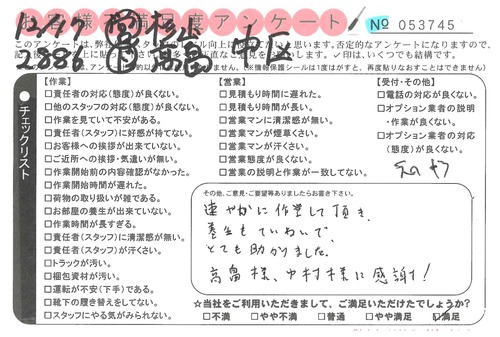 お客様不満足度アンケート
No 053745
12/17
2886
中区
このアンケートは、弊社
否定的なアンケートになりますので、
✓印は、いくつでも結構です。
(※情報保護シールは1度はがすと、再度貼りなおすことはできません)
チェックリスト
【作業】
□責任者の対応(態度)が良くない。
□他のスタッフの対応(態度)が良くない。
□作業を見ていて不安がある。
□責任者(スタッフ)に好感が持てない。
□お客様への挨拶が出来ていない。
□ご近所への挨拶・気遣いが無い。
□作業開始前の内容確認がなかった。
□作業開始時間が遅れた。
□荷物の取り扱いが雑である。
□お部屋の養生が出来ていない。
□作業時間が長すぎる。
□責任者(スタッフ)に清潔感が無い。
□責任者(スタッフ)が汗くさい。
□トラックが汚い。
□梱包資材が汚い。
□運転が不安(下手)である。
□靴下の履き替えをしてない。
□スタッフにやる気がみられない。
【営業】
□見積もり時間に遅れた。
□見積もり時間が長い。
□営業マンに清潔感が無い。
□営業マンが煙草くさい。
□営業マンが汗くさい。
□営業態度が良くない。
□営業の説明と作業が一致してない。
【受付・その他】
□電話の対応が良くない。
□オプション業者の説明
・作業が良くない。
□オプション業者の対応
(態度)が良くない。
その他、ご意見・ご要望等ありましたらお書き下さい。
速やかに作業して頂き、
養生もていねいで、
とても助かりました。
高畠様、中村様に感謝!
☆当社をご利用いただきまして、ご満足いただけたでしょうか?
□不満 □やや不満 □普通 □やや満足 ☑満足